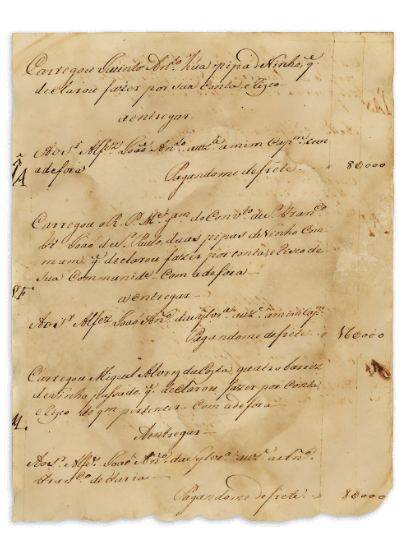 Carregou Quinto Anto. hũa pipa de Vinho, q̃
declarou fazer por sua conta e risco
a entregar
Ao Sr. Alferz. João Anto. auzte. a mim Capm. com
a de fora
Pagandome de frete 8$000
Carregou o R. P. M. do Convto. de S. Franco.
Fr. João de S. Paulo, duas pipas de Vinho Com
mum q̃ declarou fazer por conta e risco de
sua Communide. Com a de fora
a entregar
Ao Sr. Alferz. João Anto. da Sylva auze. a mim Capm.
Pagandome de frete 16$000
Carregou Miguel Alvres da Costa quatro barriz
de vinho q̃ declarou fazer por Conta
e risco de qm. pertencer Com a de fora
A entregar
Ao Sr. Alferz. João Anto. da Sylva auze. a Anto.
Franco. de Faria
Pagandome de frete 8$000